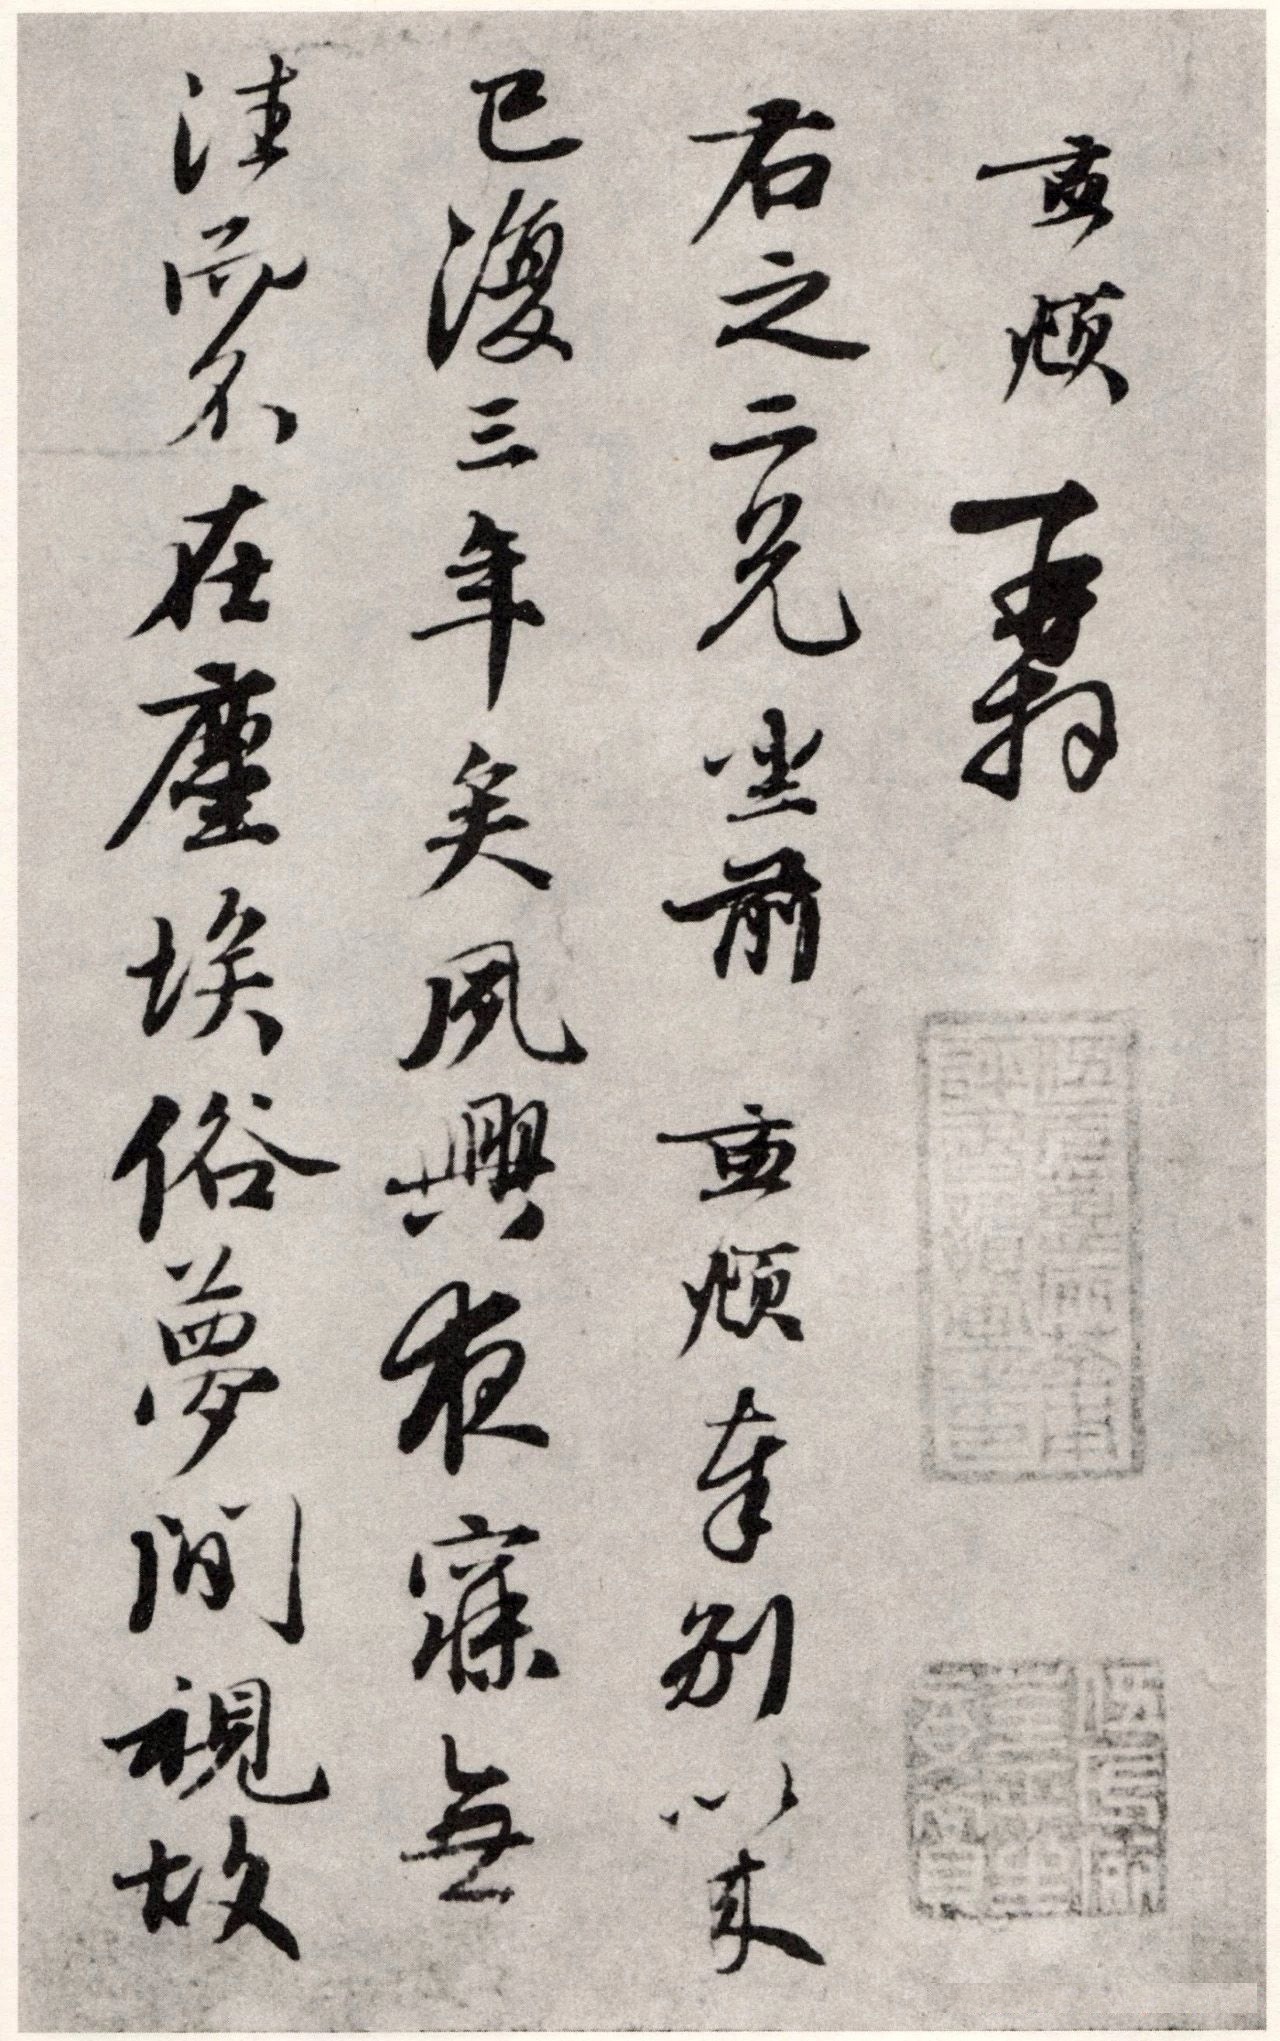 孟頫再拜
右之二兄坐前 孟頫奉別以來
已復三年矣夙興夜寐無
往而不在塵埃俗夢間視故